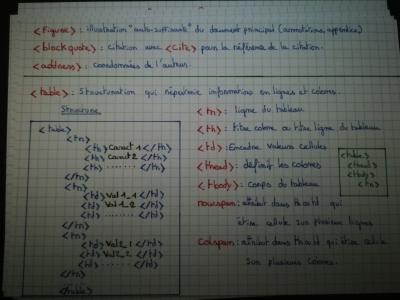 <figure> : illustration "auto-suffisante" du document principal (annotations, appendice)
<blockquote> : citation avec <cite> pour la référence de la citation.
<address> : coordonnées de l'auteur.
<table> : Structuration qui répertorie informations en lignes et colonnes.
Structure
<table>
<tr>
<th> Caract 1 </th>
<th> Caract 2 </th>
<th> ........ </th>
</tr>
<tr>
<td> Val 1_1 </td>
<td> Val 1_2 </td>
<td> ........ </td>
</tr>
<tr>
<td> Val 2_1 </td>
<td> Val 2_2 </td>
<td> ........ </td>
</tr>
</table>
<tr> : ligne du tableau
<th> : titre colonne ou titre ligne du tableau
<td> : Encadre valeurs cellules
<thead> : définir les colonnes
<tbody> : corps du tableau
<table>
<thead>
<tbody>
<tr>
rowspan : attribut dans th ou td qui
étire cellule sur plusieurs lignes
colspan : attribut dans th ou td qui étire cellule
sur plusieurs colonnes.